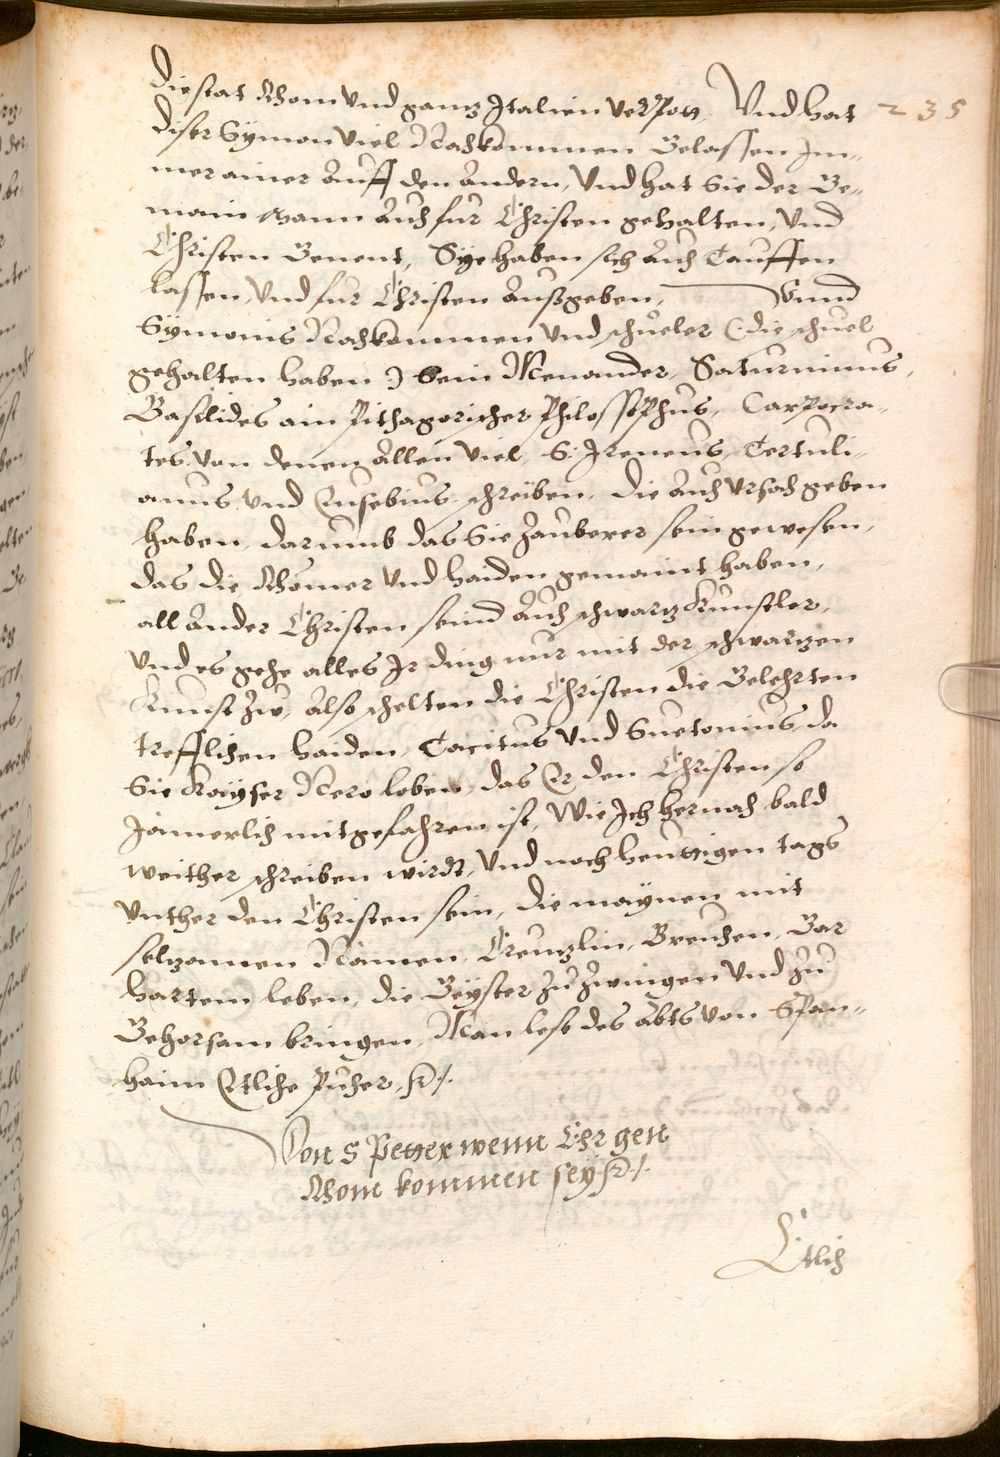 die stat Rhom vnd gantz Italien verpott, Vnd hat 235
diser Symon viel Nachkommen Gelassen Im-
mer ainer Auff den Andern, Vnd hat Sie der Ge-
main Mann Auch fur Christen gehalten, Vnd
Christen Genent, Sye haben sich Auch Tauffen
lassen, Vnd fur Christen Außgeben, Vnnd
Symonis Nachkommen Vnd schůeler (die schuel
gehalten haben) Sein Menander, Saturninus,
Basilides ain Pithagorischer Philossophus, Carpocra-
tes, von denen Allen viel, S: Ireneus, Tertuli-
anus Vnd Eusebius schreiben, die Auch Vrsach geben
haben, darumb das Sie Zauberer sein gewesen,
das die Rhömer Vnd haiden gemaint haben,
all Ander Christen seind Auch schwartz Kunstler,
Vnd es gehe alles Ir ding nur mit der schwartzen
Kunst Zu, Also schelten die Christen die Gelehrten
trefflichen haiden, Tacitus Vnd Suetonius, da
Sie Kayser Nero loben, das Er den Christen so
Jämerlich mitgefahren ist, Wie Ich hernach bald
weither schreiben wirdt, Vnd noch heuttigen tags
Vnther den Christen sein, die maynen mit
seltzamen Nämen, Creutzlin, Breuchen, Gar
hartem leben, die Geyster zu Zwingen Vnd Zu
Gehorsam bringen, Man lese des Abts von Span-
haim Etliche Pücher, &c.
Von S Petter wenn Ehr gen
Rhom kommen sey &c.
Etlich